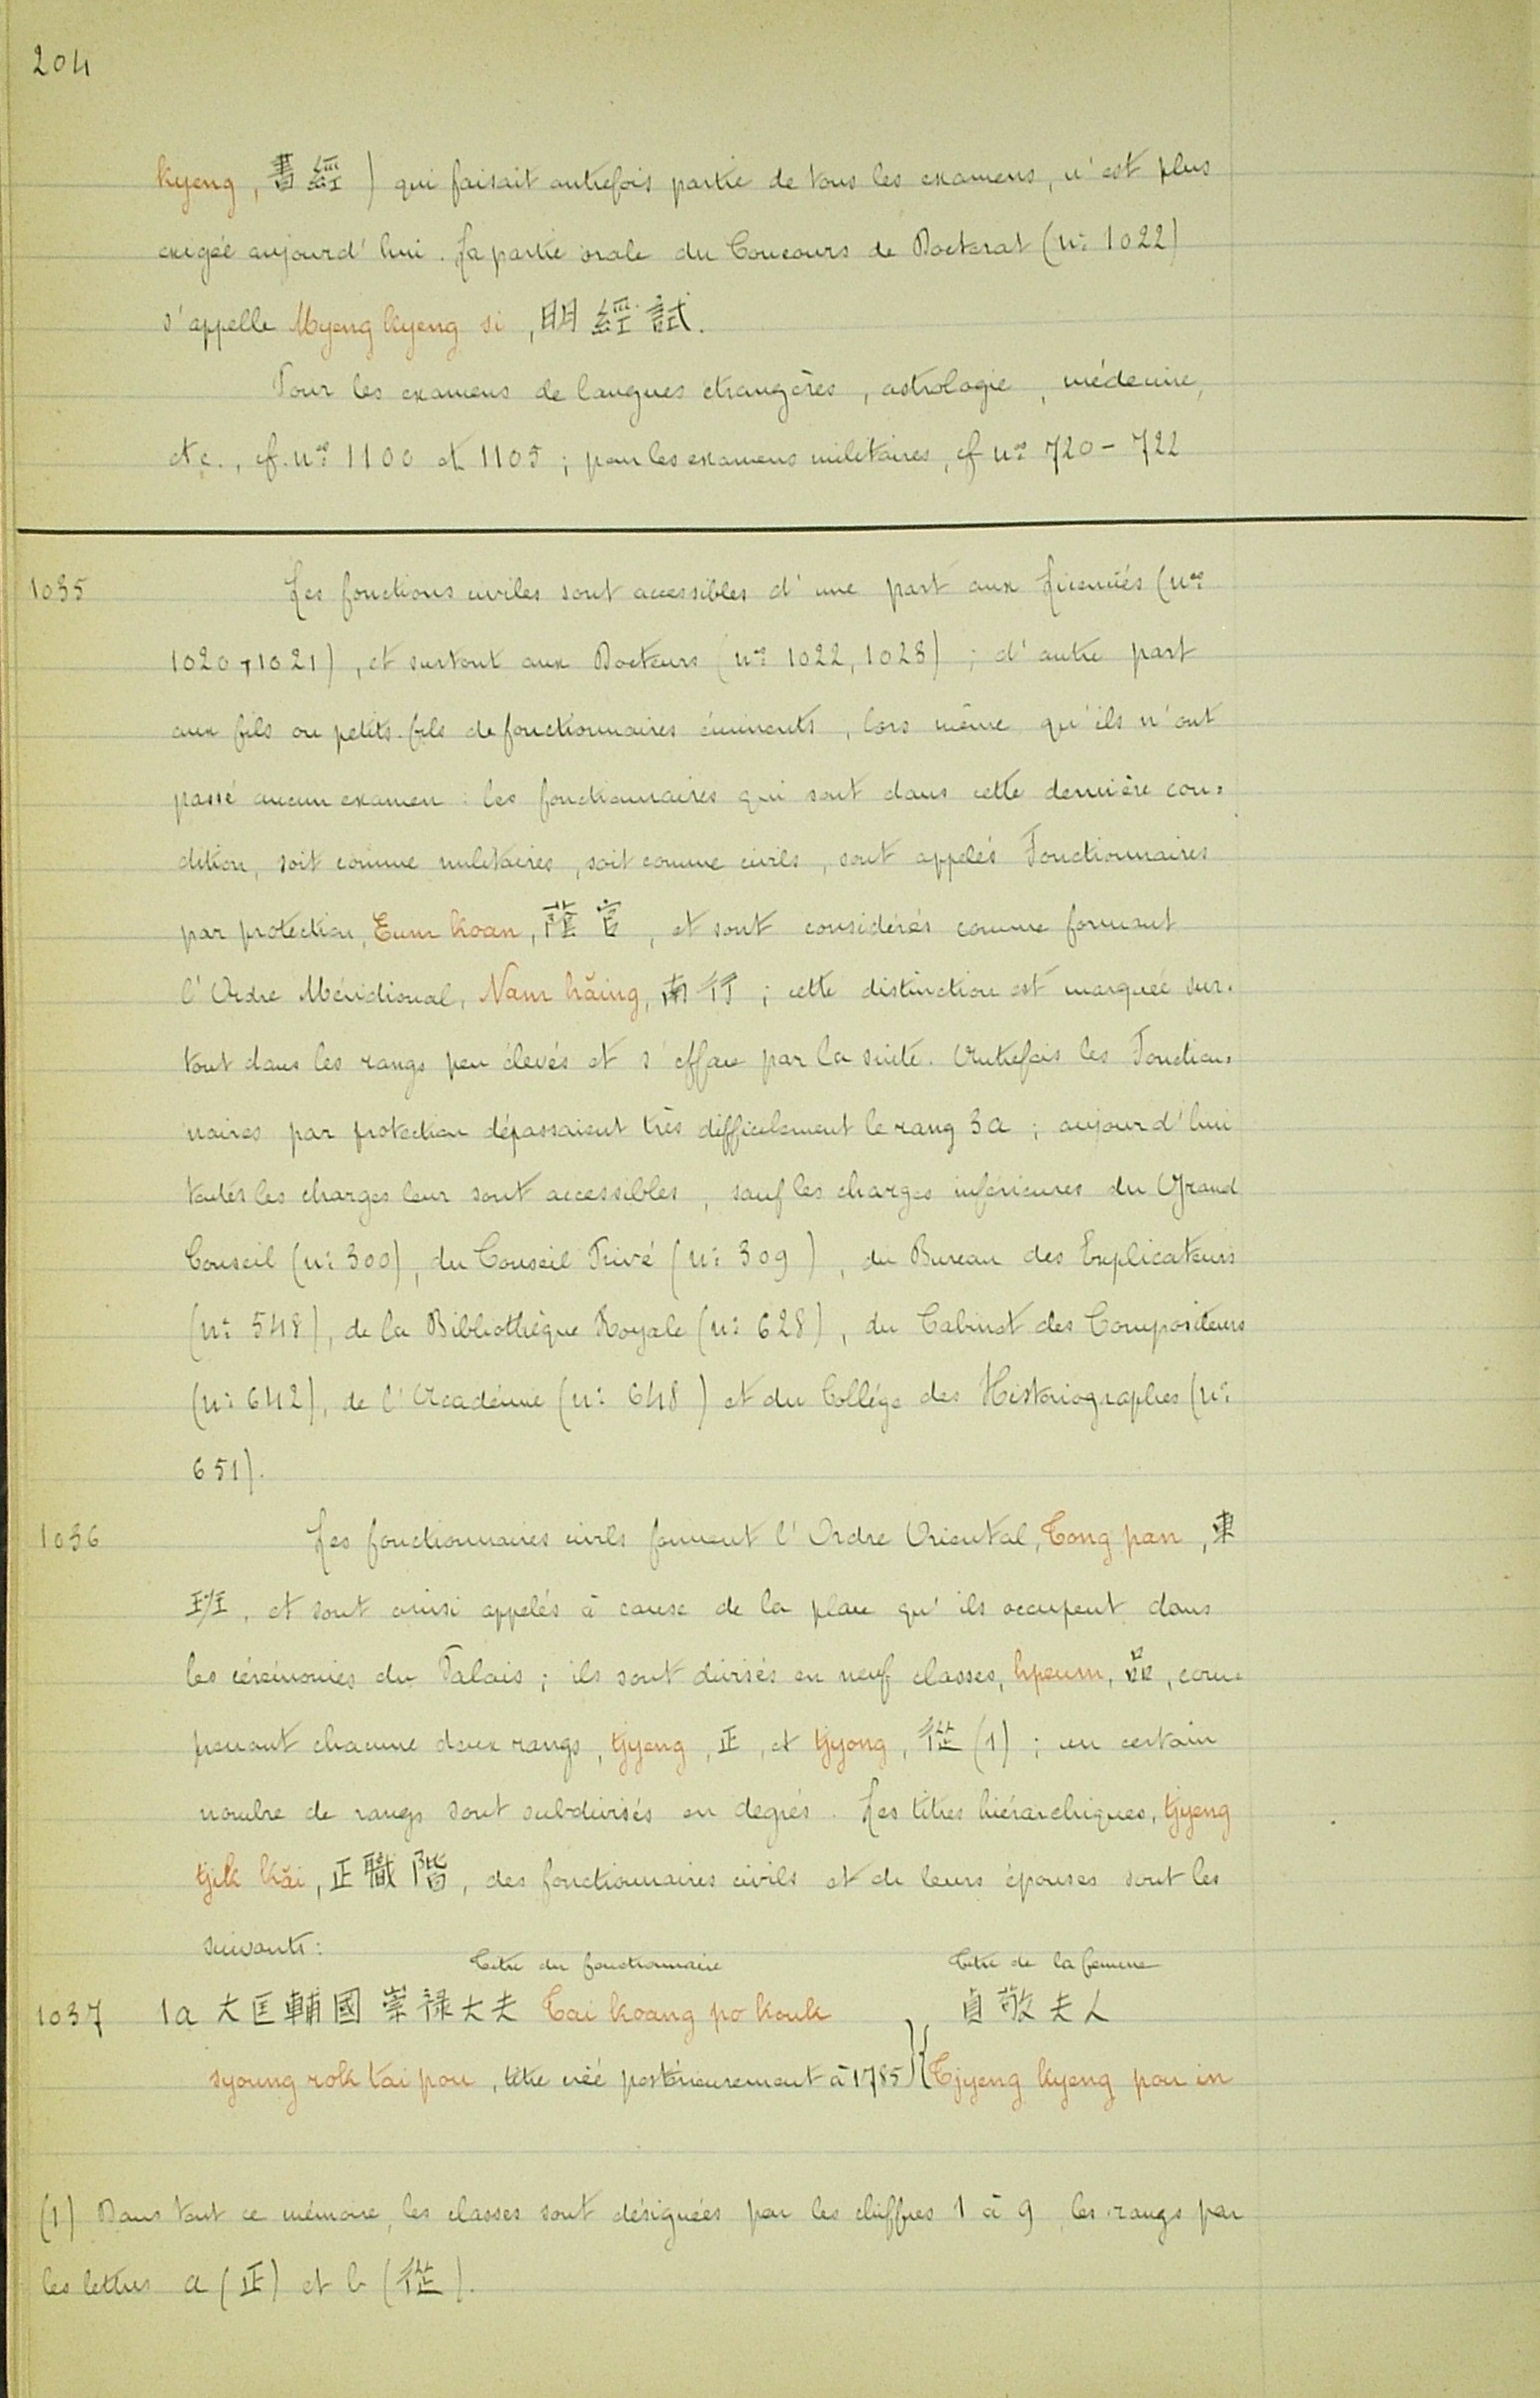 204
kyeng, 書經) qui faisait autrefois partie de tous les examens, n'est plus
exigée aujourd'hui. La partie orale du Concours de Doctorat (n: 1022)
s'appelle Myeng kyeng si, 明經試.
Pour les examens de langues étrangères, astrologie, médecine,
etc., cf. nos 1100 et 1105; pour les examens militaires, cf nos 720-722
1035 Les fonctions civiles sont accessibles d'une part aux Licenciés (nos
1020, 1021), et surtout aux Docteurs (nos 1022, 1028); d'autre part
aux fils ou petits-fils de fonctionnaires éminents, lors même qu'ils n'ont
passé aucun examen: les fonctionnaires qui sont dans cette dernière con-
dition, soit comme militaires, soit comme civils, sont appelés Fonctionnaires
par protection, Eum koan, 蔭官, et sont considérés comme formant
l'Ordre Méridional, Nam hăing, 南行; cette distinction est marquée sur-
tout dans les rangs peu élevés et s'efface par la suite. Autrefois les Fonction-
naires par protection dépassaient très difficilement le rang 3a; aujourd'hui
toutes les charges leur sont accessibles, sauf les charges inférieures du Grand
Conseil (n: 300), du Conseil Privé (n: 309), du Bureau des Explicateurs
(n: 548), de la Bibliothèque Royale (n: 628), du Cabinet des Compositeurs
(n: 642), de l'Académie (n: 648) et du Collége des Historiographes (n:
651).
1036 Les fonctionnaires civils forment l'Ordre Oriental, Tong pan, 東
班, et sont ainsi appelés à cause de la place qu'ils occupent dans
les cérémonies du Palais; ils sont divisés en neuf classes, hpeum, 品, com-
prenant chacune deux rangs, tjyeng, 正, et tjyong, 從 (1); un certain
nombre de rangs sont subdivisés en degrés. Les titres hiérarchiques, tjyeng
tjik kăi, 正職階, des fonctionnaires civils et de leurs épouses sont les
suivants:
Titre du fonctionnaire Titre de la femme
1037 1a 大匡輔國崇祿大夫 Tai koang po kouk 貞敬夫人
syoung rok tai pou, titre créé postérieurement à 1785 }{ Tjyeng kyeng pou in
(1) Dans tout ce mémoire, les classes sont désignées par les chiffres 1 à 9, les rangs par
les lettres a (正) et b (從).